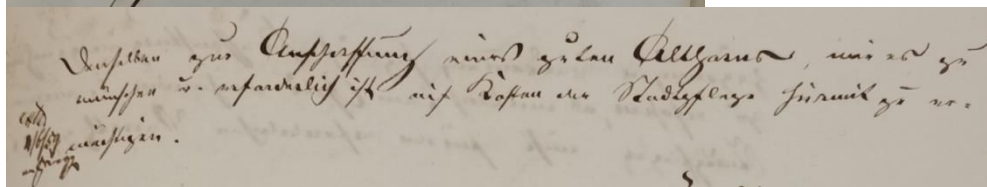 Denselben zur Anschaffung eines guten Althorns, wie es zu
wünschen u. erforderlich ist auf Kosten der Stadtpflege hiermit zu er-
mächtigen.